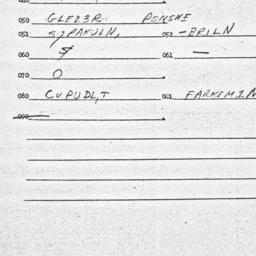 050 GLEZ3R PONSNE
051 SZPAKULN, 052 -ERILN
060 $ 061 —
070 O
080 CUPUDL,T 081 FARKEMIN
090